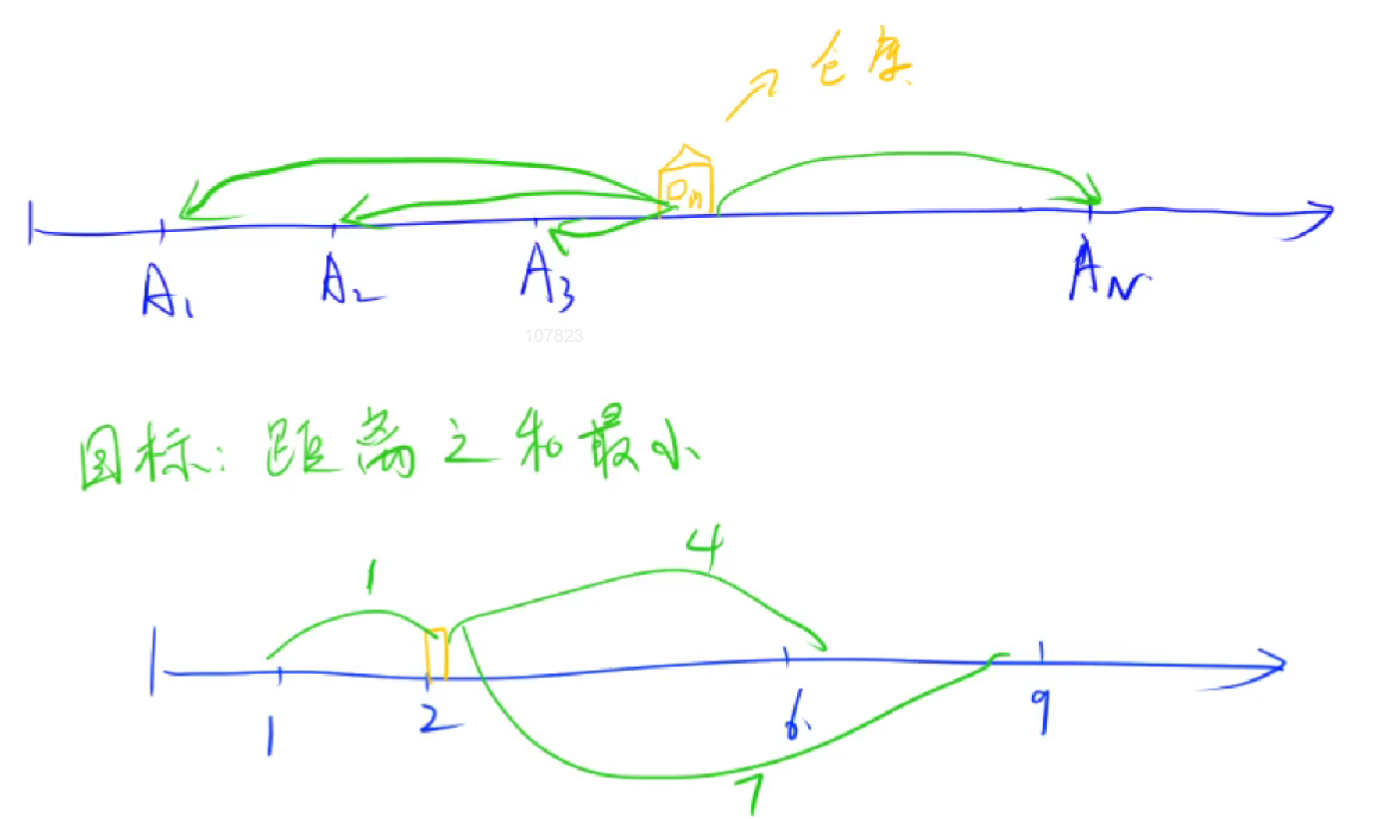 仓库
A₁ A₂ A₃ A_N
107823
目标：距离之和最小
1 4
1 2 6 9
7